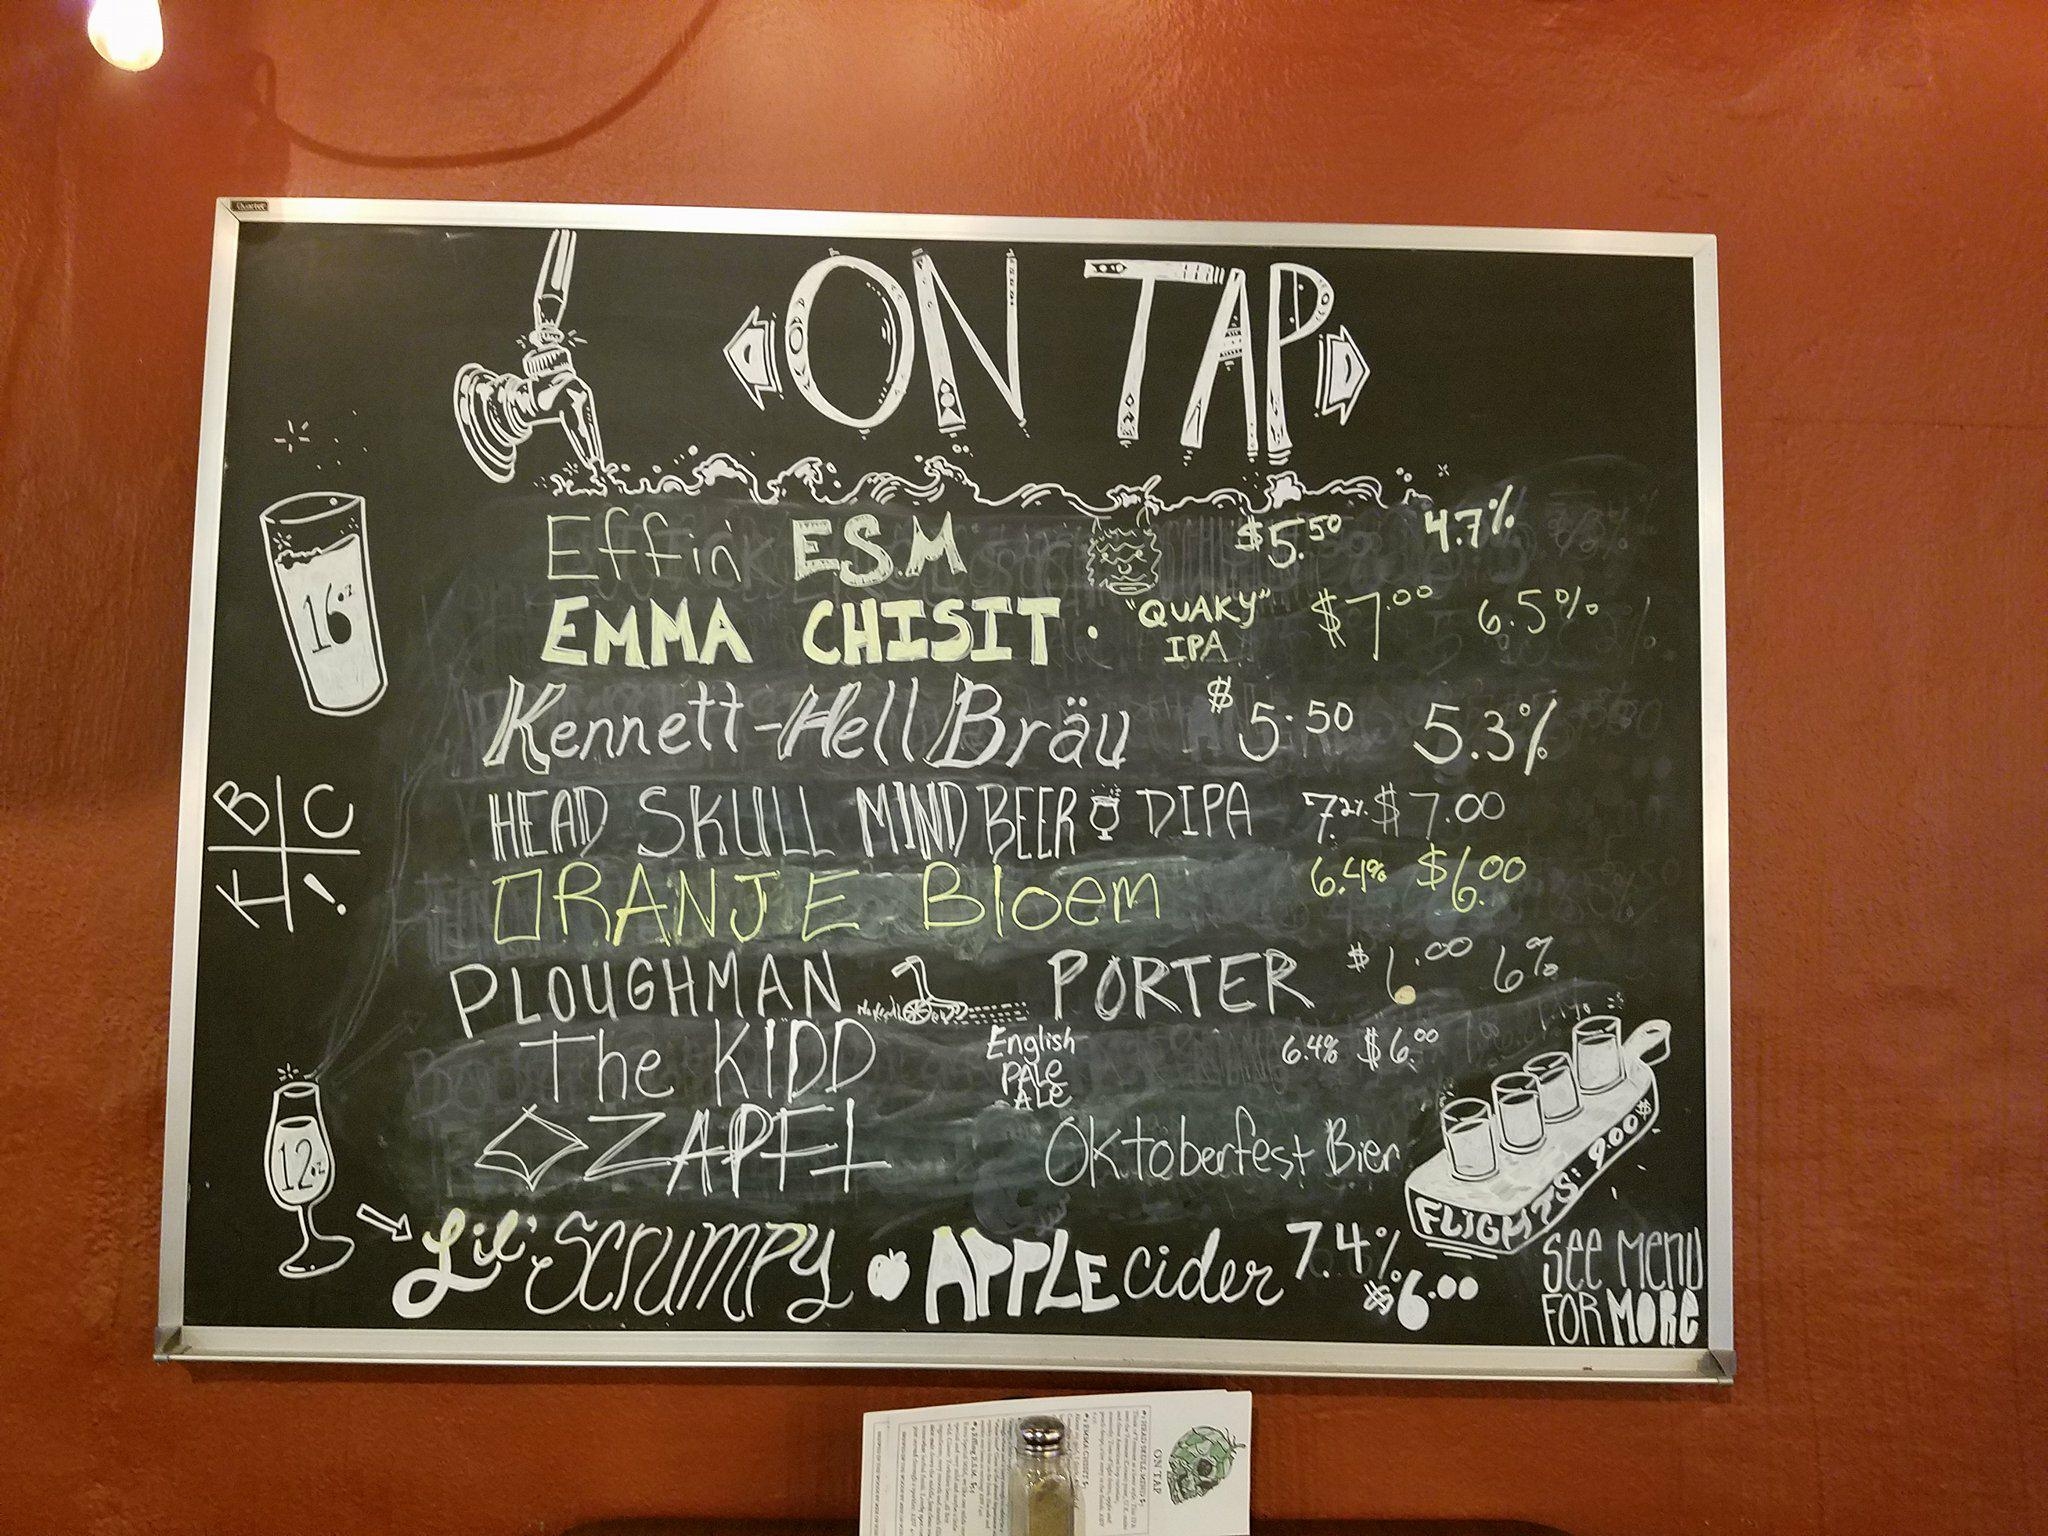 Quartet
ON TAP
Effin ESM $5.50 4.7%
16oz
EMMA CHISIT · "QUAKY" IPA $7.00 6.5%
Kennett-Hell Bräu $5.50 5.3%
B C
K !
HEAD SKULL MIND BEER DIPA 7.2% $7.00
ORANJE Bloem 6.4% $6.00
PLOUGHMAN PORTER $6.00 6%
The KIDD English PALE ALE 6.4% $6.00
ZAPFT Oktoberfest Bier
12oz
FLIGHTS: 9.00$
Lil' Scrumpy APPLE cider 7.4% $6.00
See MENU
FOR MORE
ON TAP